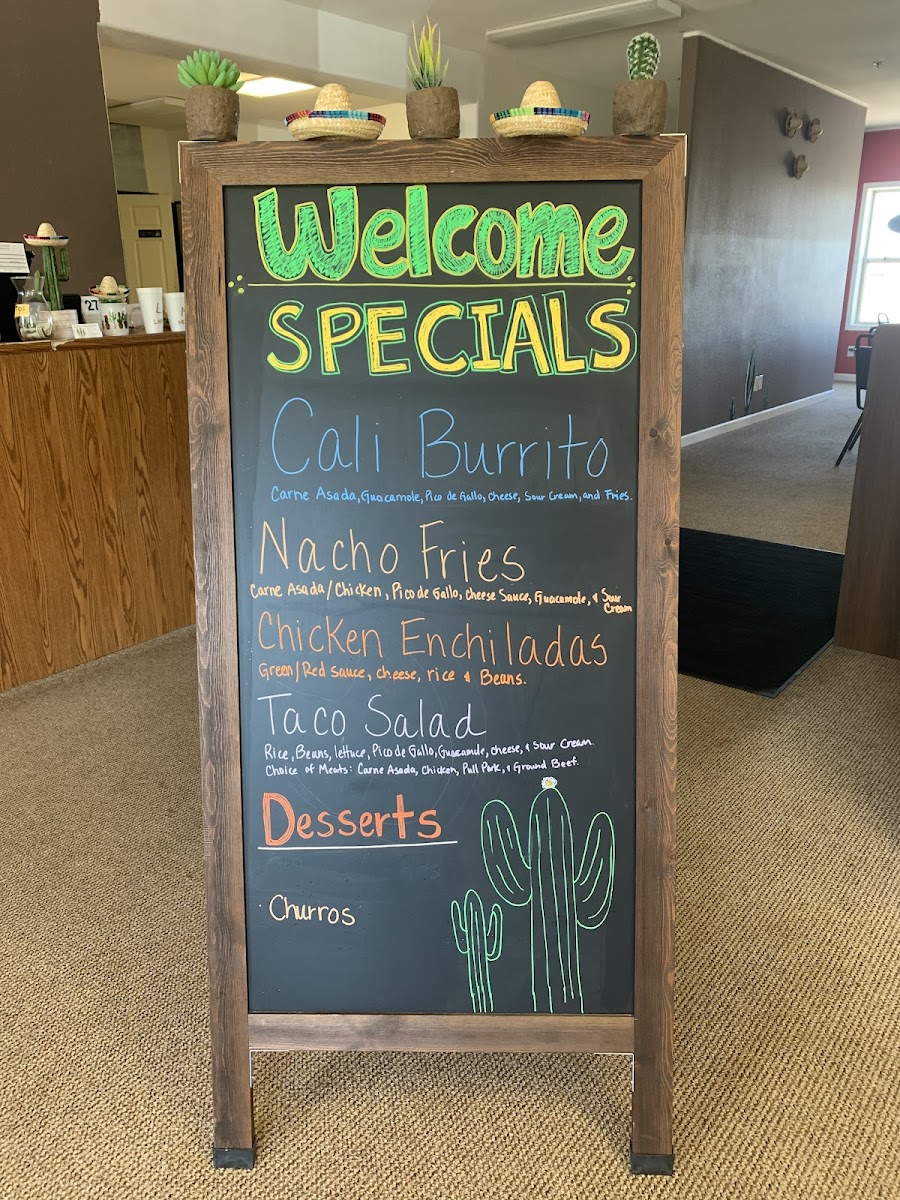 Welcome
SPECIALS
Cali Burrito
Carne Asada, Guacamole, Pico de Gallo, cheese, Sour Cream, and Fries.
Nacho Fries
Carne Asada/Chicken, Pico de Gallo, cheese Sauce, Guacamole, & Sour
Cream
Chicken Enchiladas
Green/Red sauce, cheese, rice & Beans.
Taco Salad
Rice, Beans, lettuce, Pico de Gallo, Guacamole, cheese, & Sour Cream.
Choice of Meats: Carne Asada, Chicken, Pull Pork, & Ground Beef.
Desserts
Churros
27